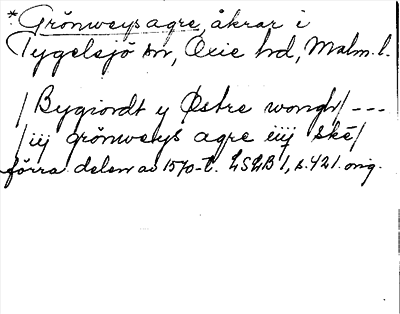 *Grönweys agre, åkrar i
Tygelsjö sn, Oxie hd, Malm. l.
/Bygiordt y Østre wongh/ ---
/iij grönweys agre iiij ske/
förra delen av 1570-t. LSLB 1, s. 421. orig.